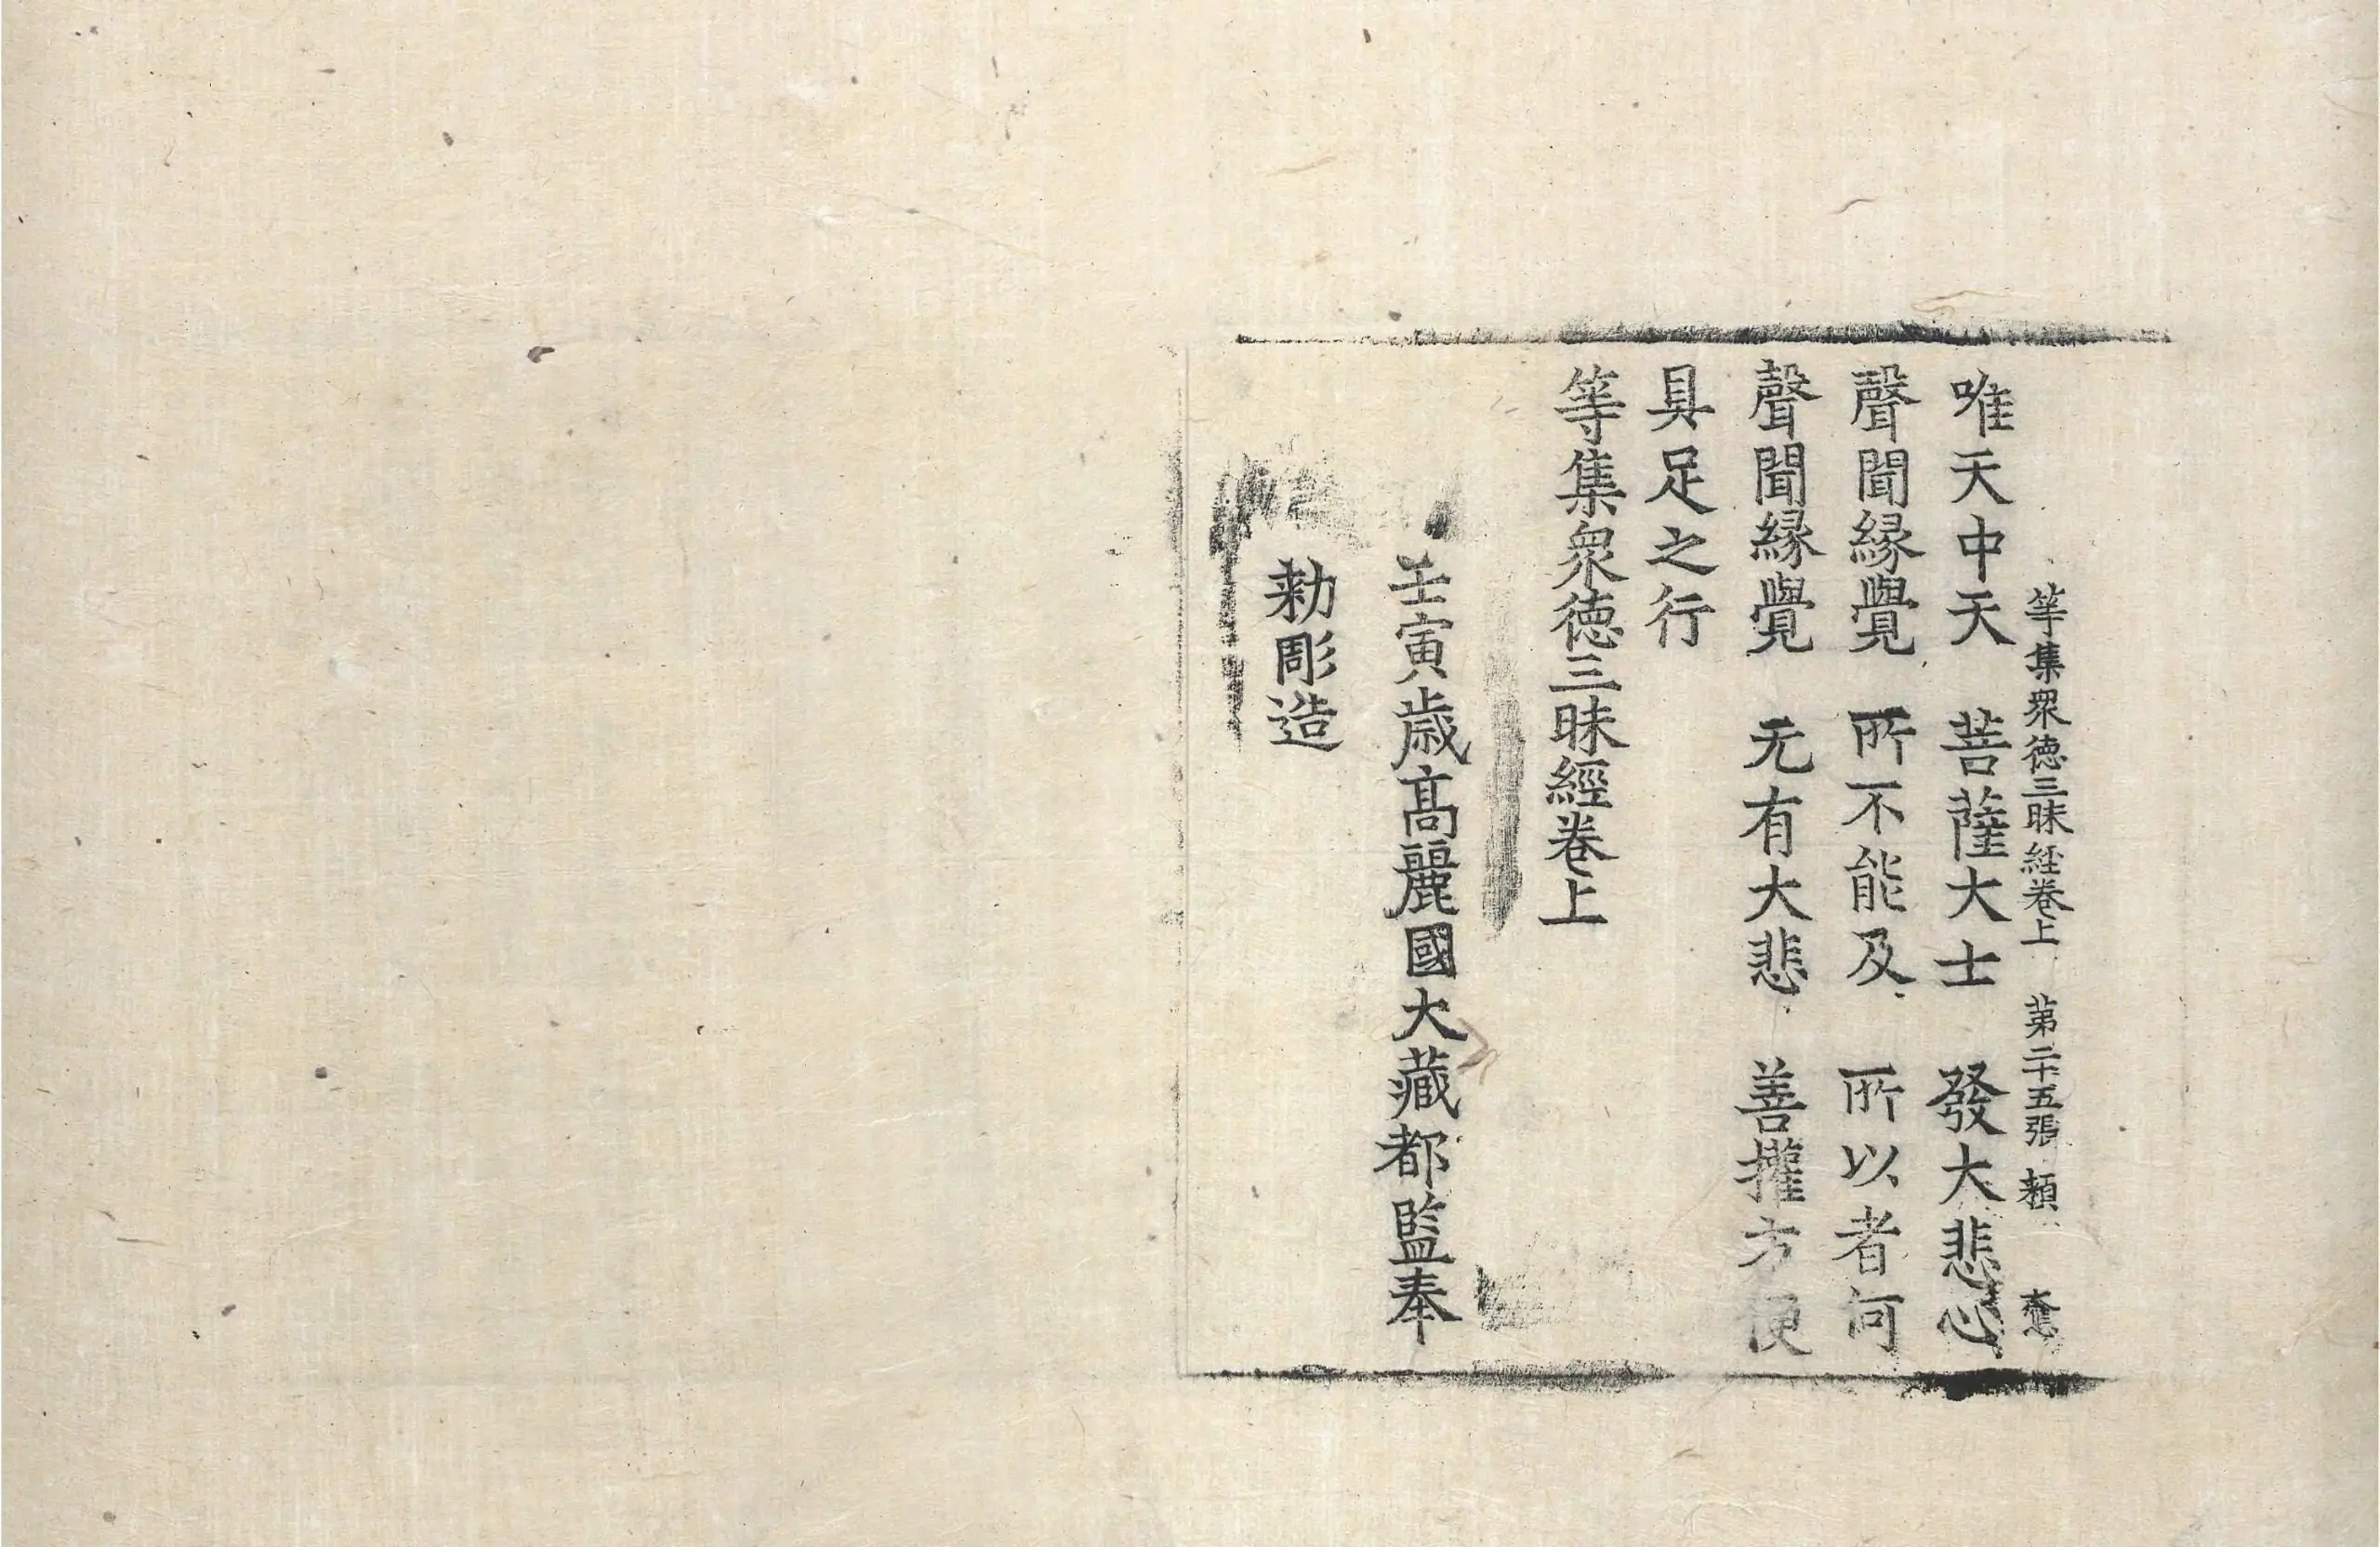 等集衆徳三昧経卷上 第二十五張 頼 奮
唯天中天 菩薩大士 發大悲心
聲聞縁覺 所不能及 所以者何
聲聞縁覺 无有大悲 善攉方便
具足之行
等集衆徳三昧經卷上
壬寅歳髙麗國大藏都監奉
勑彫造